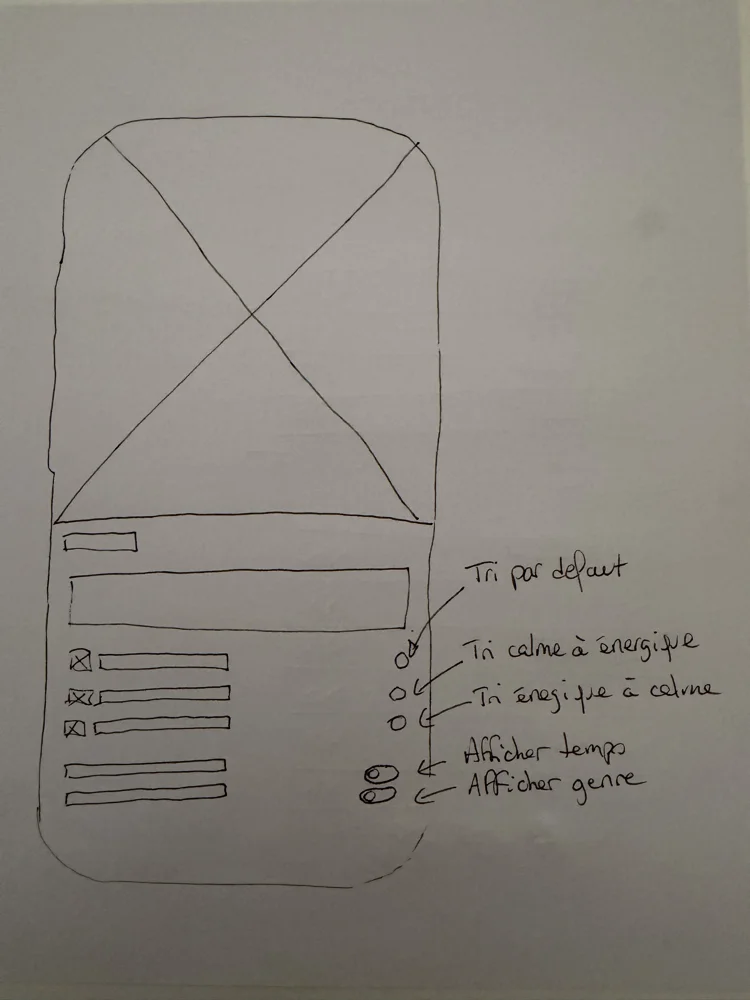 Tri par défaut
Tri calme à énergique
Tri énegique à calme
Afficher temps
Afficher genre